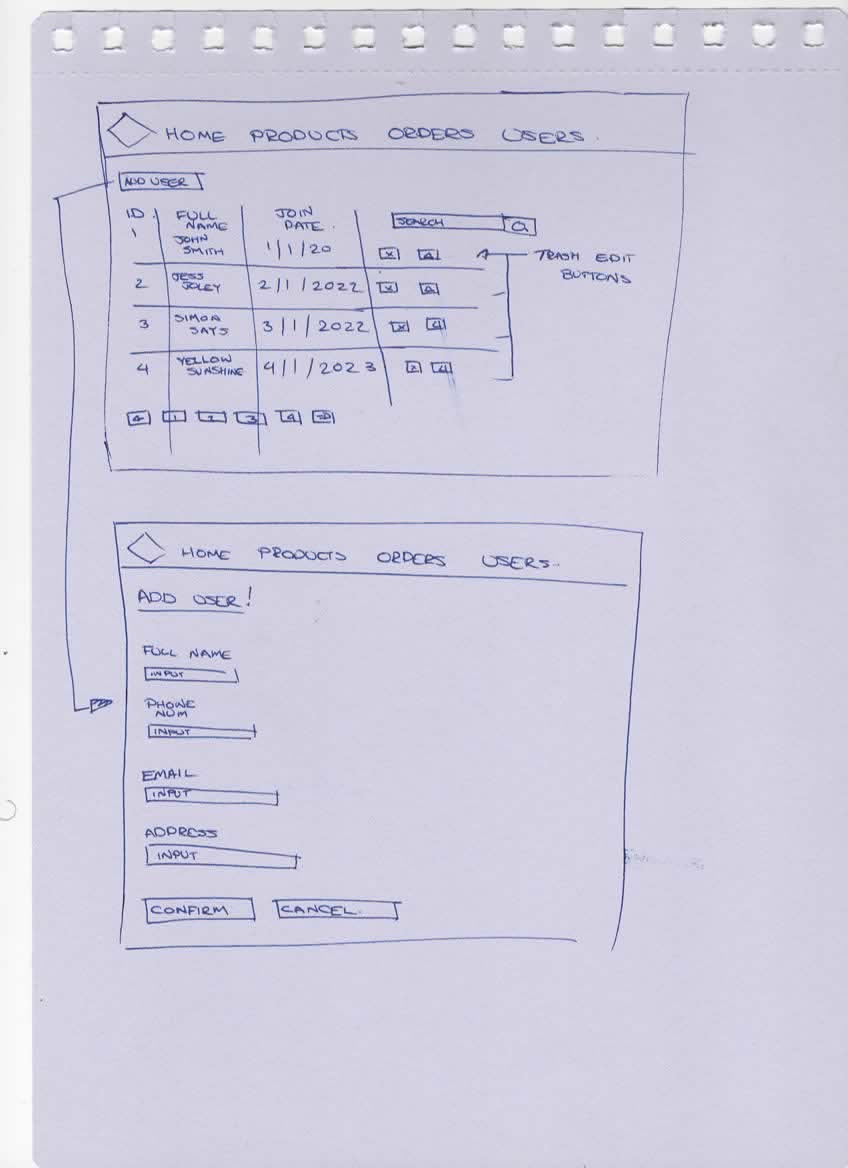 HOME PRODUCTS ORDERS USERS.
ADD USER
ID. FULL NAME JOIN DATE. SEARCH
1 JOHN SMITH 1/1/20 X
TRASH EDIT
BUTTONS
2 JESS JOLEY 2/1/2022 X
3 SIMOA SAYS 3/1/2022 X
4 YELLOW SUNSHINE 4/1/2023
1 2 3 4
HOME PRODUCTS ORDERS USERS..
ADD USER!
FULL NAME
INPUT
PHONE
NUM
INPUT
EMAIL
INPUT
ADDRESS
INPUT
CONFIRM CANCEL.